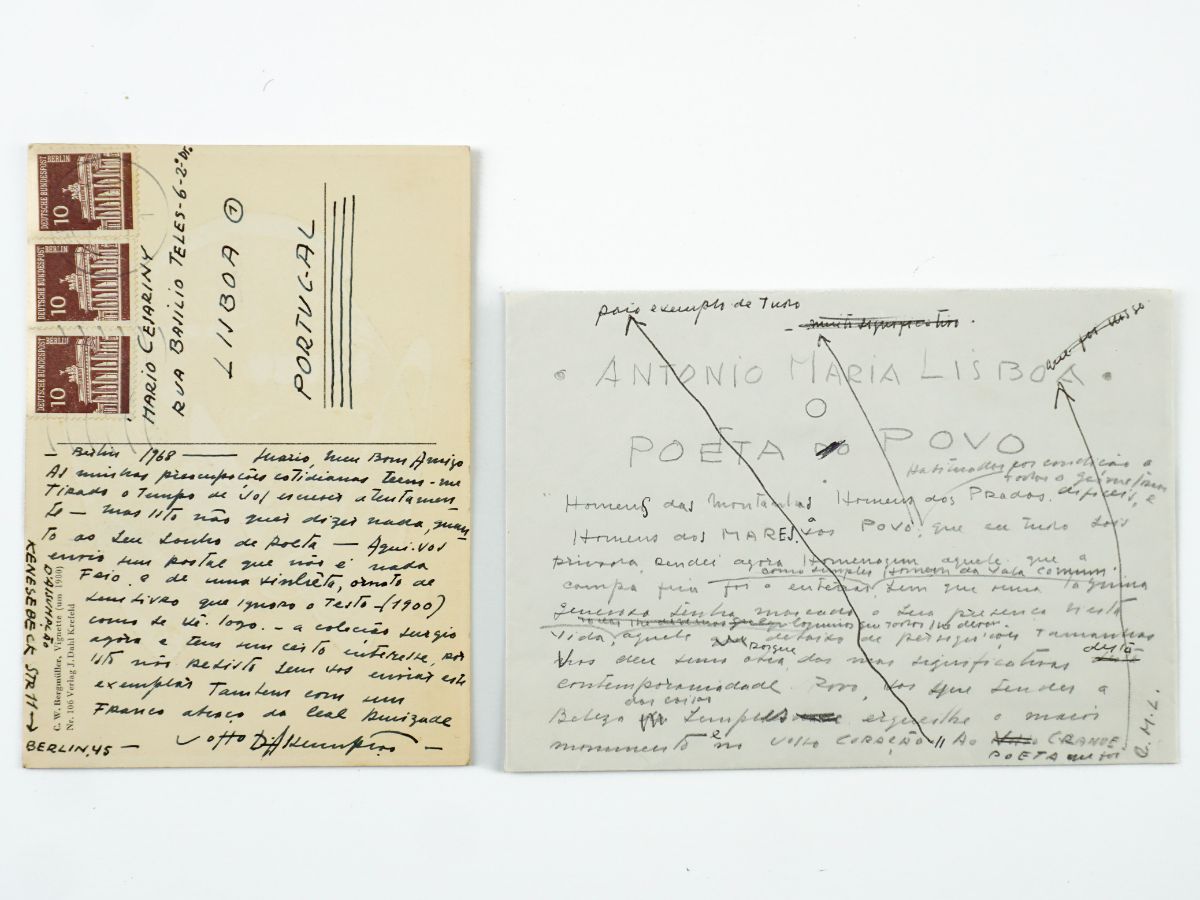 DEUTSCHE BUNDESPOST BERLIN
10
DEUTSCHE BUNDESPOST BERLIN
10
DEUTSCHE BUNDESPOST BERLIN
10
MARIO CESARINY
RUA BASILIO TELES-6-2º Dº.
LISBOA ①
PORTUGAL
- Berlin 1968 — Mario, meu Bom Amigo
As minhas preocupações cotidianas teem-me
tirado o tempo de vos escrever atentamen
te — mas isto não quer dizer nada, quan
to ao seu sonho de Poeta — Aqui vos
envio um postal que não é nada
Feio, e de uma
seu livro que ignoro o Texto - (1900)
como se vê logo. - a coleção surgiu
agora e tem um certo interesse, por
isto não resisto sem vos enviar este
exemplar Tambem com um
Franco abraço da leal Amizade
Vosso D'Assumpção —
D'ASSUMPÇÃO
KENESEBECK STR 11 →
BERLIN, 45 —
C. W. Bergmüller, Vignette (um 1900)
Nr. 106 Verlag J. Dahl Krefeld
exemplo de Tudo
- muito significativo.
que foi
• ANTONIO MARIA LISBOA •
O
POETA do POVO
Habituados por condição a
todos o
difíceis, e
Homens das Montanhas Homens dos Prados
Homens dos MARES. vós POVO: que em tudo sois
agora Homenagem aquele que a
como simples Homem da Vala comum
campa fria foi a enterrar sem que uma lagrima
generosa tenha marcado a sua presença nesta
Vida, aquele que debaixo de perseguições tamanhas
porque
Vos deu uma obra das mais significativas desta
contemporaneidade. Povo, vós que tendes a
das coisas
Beleza Sempre ergueste o maior
monumento e no Vosso CORAÇÃO" AO GRANDE
POETA que foi
A. M. L.